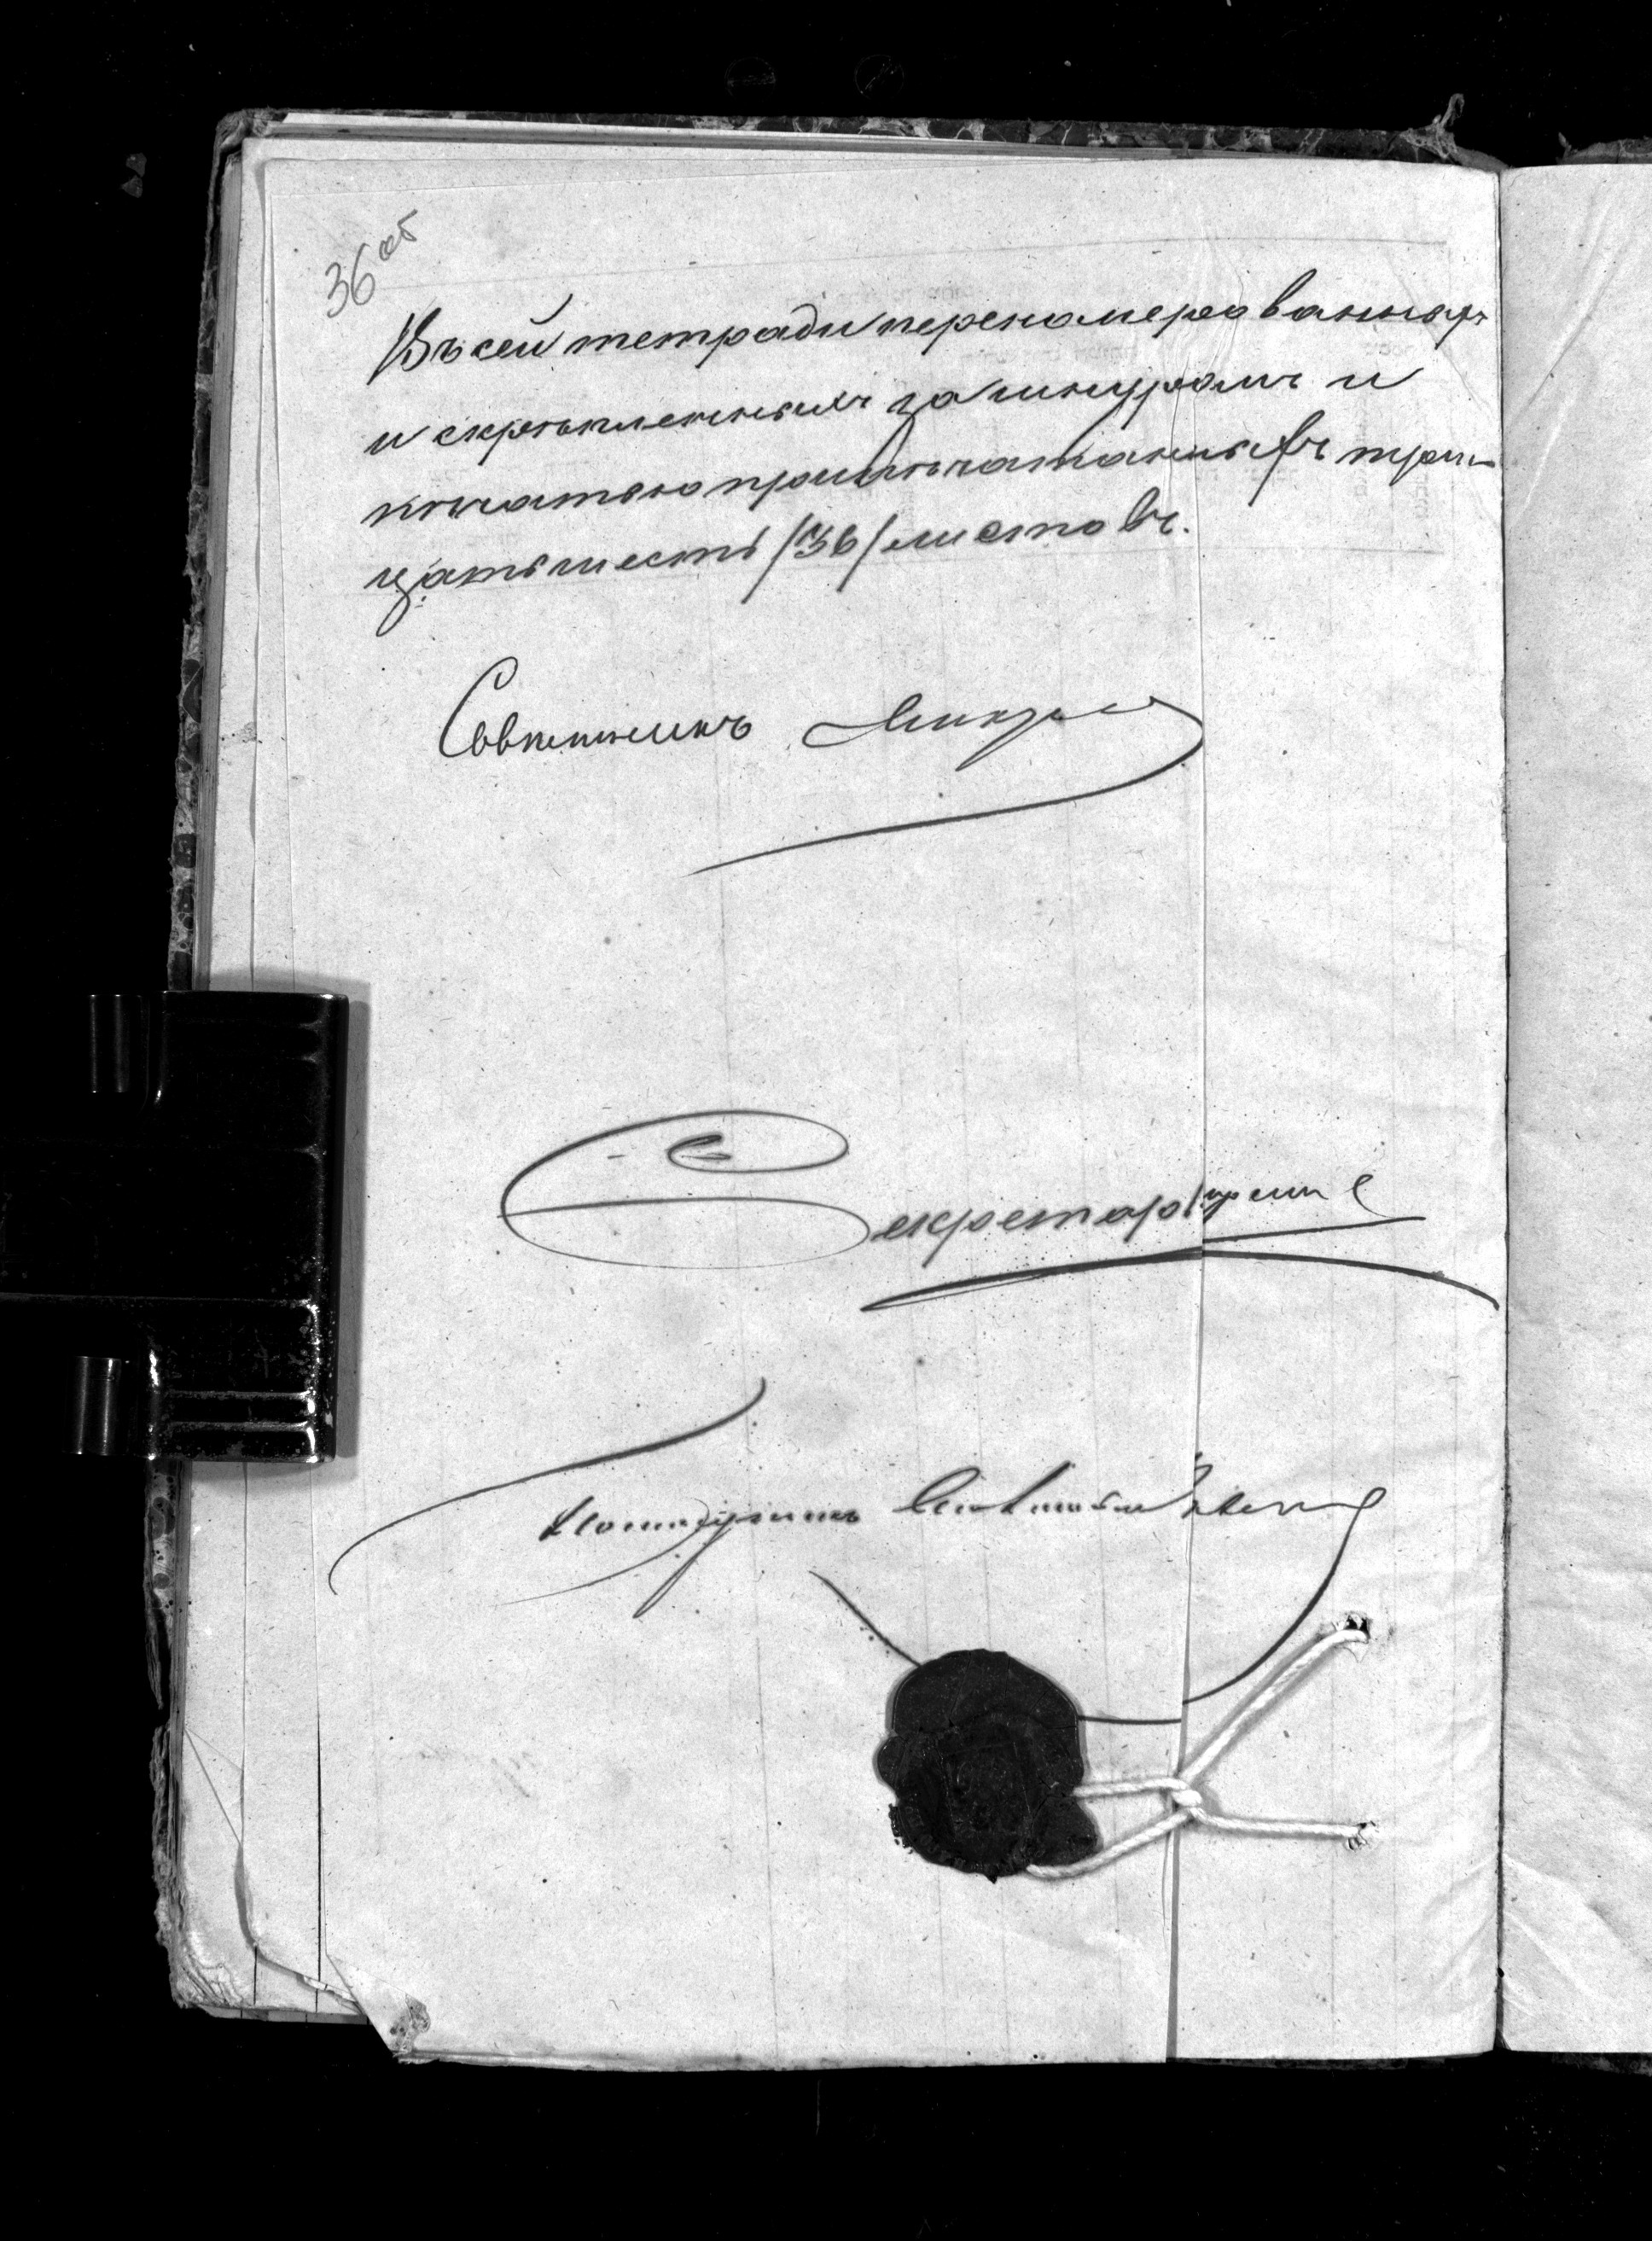 36 об
Въ сей тетради переномерованныхъ
и скрѣпленныхъ за шнуромъ и
печатью припечатанныхъ трид-
цать шесть /36/ листовъ.
Совѣтникъ
Секретарь